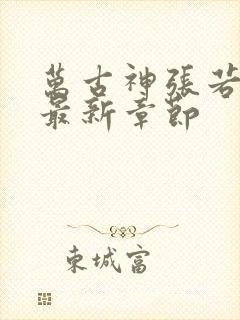 萬古神張若
最新章節
東城富